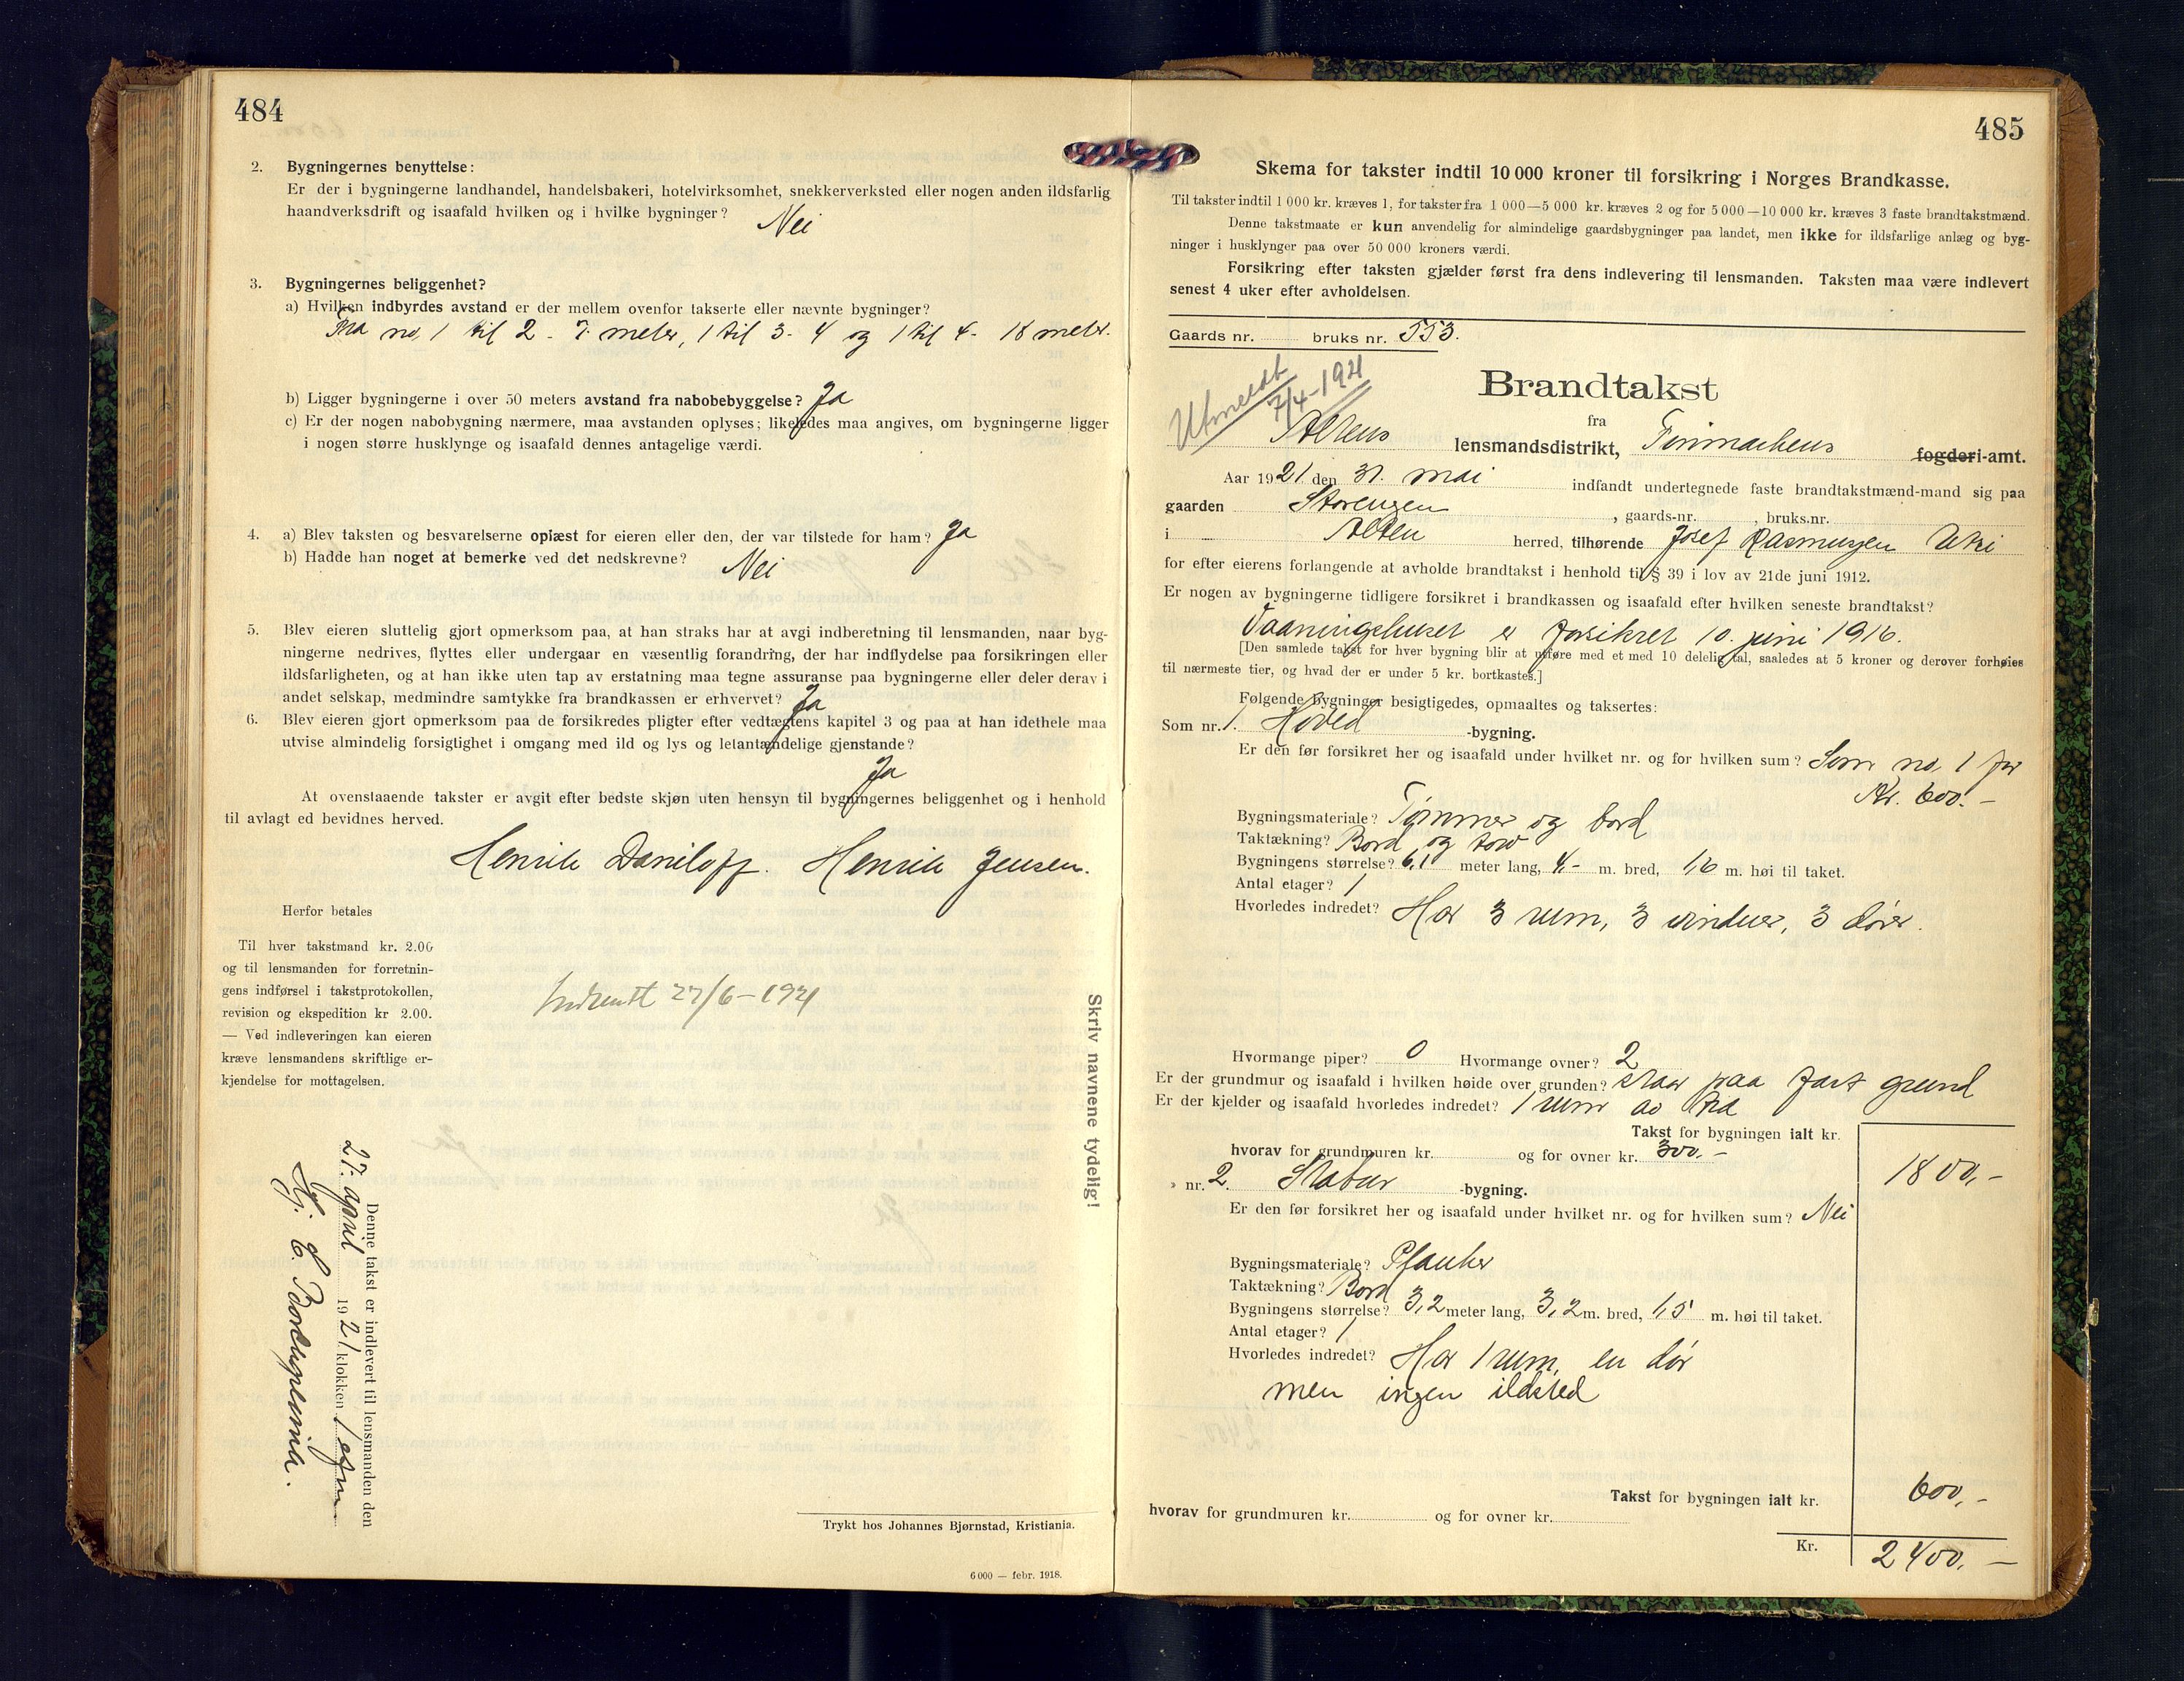 484
2. Bygningernes benyttelse:
Er der i bygningerne landhandel, handelsbakeri, hotelvirksomhet, snekkerverksted eller nogen anden ildsfarlig
haandverksdrift og isaafald hvilken og i hvilke bygninger? Nei
3. Bygningernes beliggenhet?
a) Hvilken indbyrdes avstand er der mellem ovenfor takserte eller nævnte bygninger?
Fra no. 1 til 2 - 7 meter, 1 til 3 - 4 og 1 til 4 - 18 meter.
b) Ligger bygningerne i over 50 meters avstand fra nabobebyggelse? Ja
c) Er der nogen nabobygning nærmere, maa avstanden oplyses; likeledes maa angives, om bygningerne ligger
i nogen større husklynge og isaafald dennes antagelige værdi.
4. a) Blev taksten og besvarelserne oplæst for eieren eller den, der var tilstede for ham? Ja
b) Hadde han noget at bemerke ved det nedskrevne? Nei
5. Blev eieren sluttelig gjort opmerksom paa, at han straks har at avgi indberetning til lensmanden, naar byg-
ningerne nedrives, flyttes eller undergaar en væsentlig forandring, der har indflydelse paa forsikringen eller
ildsfarligheten, og at han ikke uten tap av erstatning maa tegne assuranse paa bygningerne eller deler derav i
andet selskap, medmindre samtykke fra brandkassen er erhvervet? Ja
6. Blev eieren gjort opmerksom paa de forsikredes pligter efter vedtægtens kapitel 3 og paa at han idethele maa
utvise almindelig forsigtighet i omgang med ild og lys og letantændelige gjenstande?
Ja
At ovenstaaende takster er avgit efter bedste skjøn uten hensyn til bygningernes beliggenhet og i henhold
til avlagt ed bevidnes herved.
Henrik Daniloff. Henrik Jensen.
Herfor betales
Til hver takstmand kr. 2.00
og til lensmanden for forretnin-
gens indførsel i takstprotokollen,
revision og ekspedition kr 2.00.
— Ved indleveringen kan eieren
kræve lensmandens skriftlige er-
kjendelse for mottagelsen.
Indsendt 27/6-1921
Skriv navnene tydelig!
Denne takst er indlevert til lensmanden den
27. april 1921 klokken 1 efm
Hj. C.
Trykt hos Johannes Bjørnstad, Kristiania.
6000 — febr. 1918.
485
Skema for takster indtil 10 000 kroner til forsikring i Norges Brandkasse.
Til takster indtil 1 000 kr. kræves 1, for takster fra 1 000—5 000 kr. kræves 2 og for 5 000—10 000 kr. kræves 3 faste brandtakstmænd.
Denne takstmaate er kun anvendelig for almindelige gaardsbygninger paa landet, men ikke for ildsfarlige anlæg og byg-
ninger i husklynger paa over 50 000 kroners værdi.
Forsikring efter taksten gjælder først fra dens indlevering til lensmanden. Taksten maa være indlevert
senest 4 uker efter avholdelsen.
Gaards nr. bruks nr. 553.
Utmeldt
7/4-1921
Brandtakst
fra
Altens lensmandsdistrikt, Finmarkens fogderi-amt.
Aar 1921 den 31. mai indfandt undertegnede faste brandtakstmænd-mand sig paa
gaarden Storengen, gaards-nr. , bruks.nr.
i Alten herred, tilhørende Josef Rasmussen Utsi
for efter eierens forlangende at avholde brandtakst i henhold til § 39 i lov av 21de juni 1912.
Er nogen av bygningerne tidligere forsikret i brandkassen og isaafald efter hvilken seneste brandtakst?
Vaaningshuset er forsikret 10. juni 1916.
[Den samlede takst for hver bygning blir at utføre med et med 10 delelig tal, saaledes at 5 kroner og derover forhøies
til nærmeste tier, og hvad der er under 5 kr. bortkastes.]
Følgende bygninger besigtigedes, opmaaltes og taksertes:
Som nr. 1. Hoved -bygning.
Er den før forsikret her og isaafald under hvilket nr. og for hvilken sum? Som no. 1 for
Kr. 600.-
Bygningsmateriale? Tømmer og bord
Taktækning? Bord og torv
Bygningens størrelse? 6,1 meter lang, 4,- m. bred, 1,6 m. høi til taket.
Antal etager? 1
Hvorledes indredet? Har 3 rum, 3 vinduer, 3 dører.
Hvormange piper? 0 Hvormange ovner? 2
Er der grundmur og isaafald i hvilken høide over grunden? staar paa fast grund
Er der kjelder og isaafald hvorledes indredet? 1 rum av træ
Takst for bygningen ialt kr.
hvorav for grundmuren kr. og for ovner kr. 300.- 1800,-
» nr. 2. Stabur -bygning.
Er den før forsikret her og isaafald under hvilket nr. og for hvilken sum? Nei
Bygningsmateriale? Planker
Taktækning? Bord
Bygningens størrelse? 3,2 meter lang, 3,2 m. bred, 1,5 m. høi til taket.
Antal etager? 1
Hvorledes indredet? Har 1 rum, en dør
men ingen ildsted
Takst for bygningen ialt kr. 600,-
hvorav for grundmuren kr. og for ovner kr.
Kr. 2400.-